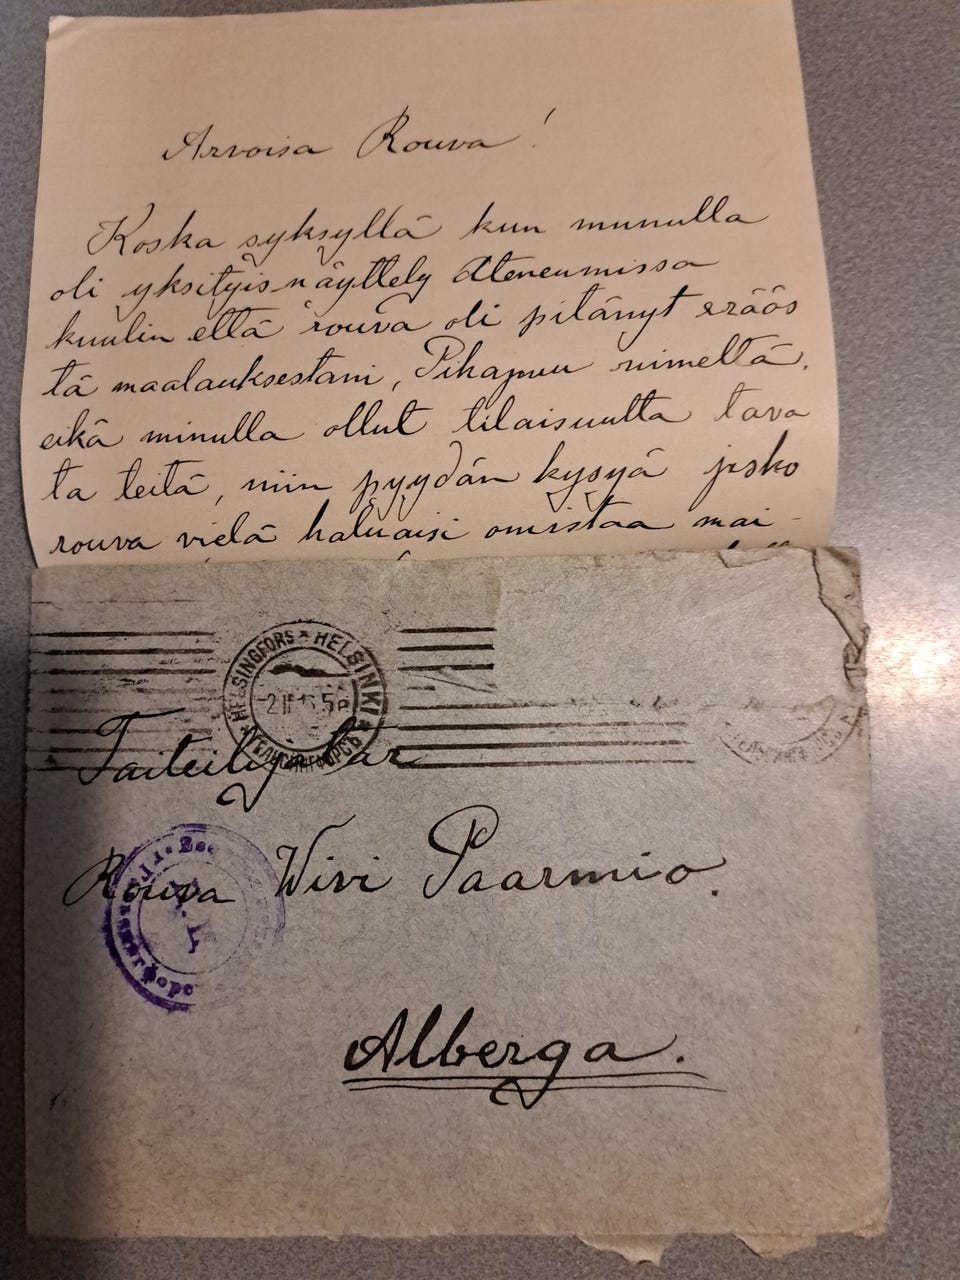 Arvoisa Rouva!
Koska syksyllä kun munulla
oli yksityisnäyttely Ateneumissa
kuulin että rouva oli pitänyt eräös
tä maalauksestani, Pihapuu nimeltä,
eikä minulla ollut tilaisuutta tava
ta teitä, niin pyydän kysyä josko
rouva vielä haluaisi omistaa mai-
HELSINGFORS * HELSINKI * ГЕЛЬСИНГФОРСЪ *
Taiteilijatar
Rouva Wivi Paarmio.
Alberga.